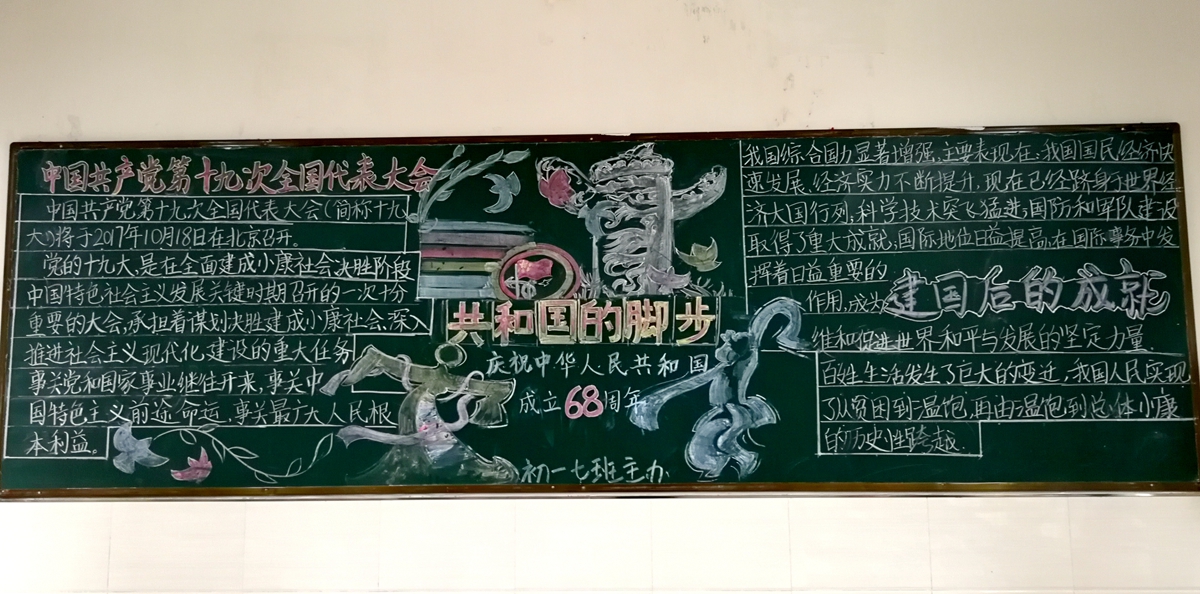 中国共产党第十九次全国代表大会
中国共产党第十九次全国代表大会(简称十九
大)将于2017年10月18日在北京召开。
党的十九大,是在全面建成小康社会决胜阶段
中国特色社会主义发展关键时期召开的一次十分
重要的大会,承担着谋划决胜建成小康社会,深入
推进社会主义现代化建设的重大任务
事关党和国家事业继往开来,事关中
国特色主义前途命运,事关最广大人民根
本利益。
共和国的脚步
庆祝中华人民共和国
成立68周年
初一七班主办
我国综合国力显著增强,主要表现在:我国国民经济快
速发展,经济实力不断提升,现在已经跻身于世界经
济大国行列;科学技术突飞猛进;国防和军队建设
取得了重大成就,国际地位日益提高,在国际事务中发
挥着日益重要的
作用,成为
建国后的成就
维和促进世界和平与发展的坚定力量.
百姓生活发生了巨大的变迁,我国人民实现
了从贫困到温饱,再由温饱到总体小康
的历史性跨越.